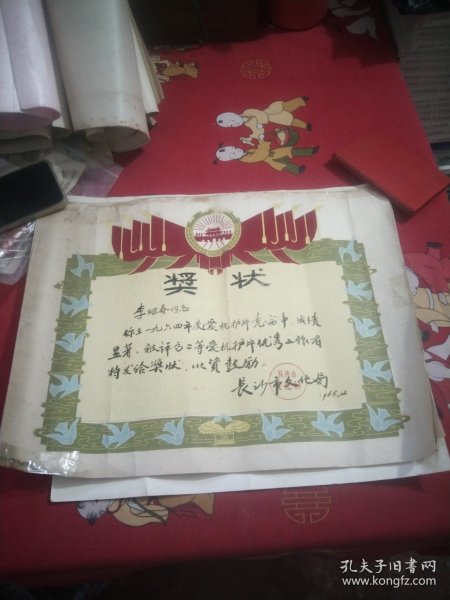 奖状
李昭春同志
你在一九六四年度爱机护片竞赛中,成绩
显著,被评为二等爱机护片优秀工作者
特发给奖状,以资鼓励。
长沙市文化局
孔夫子旧书网
www.kongfz.com